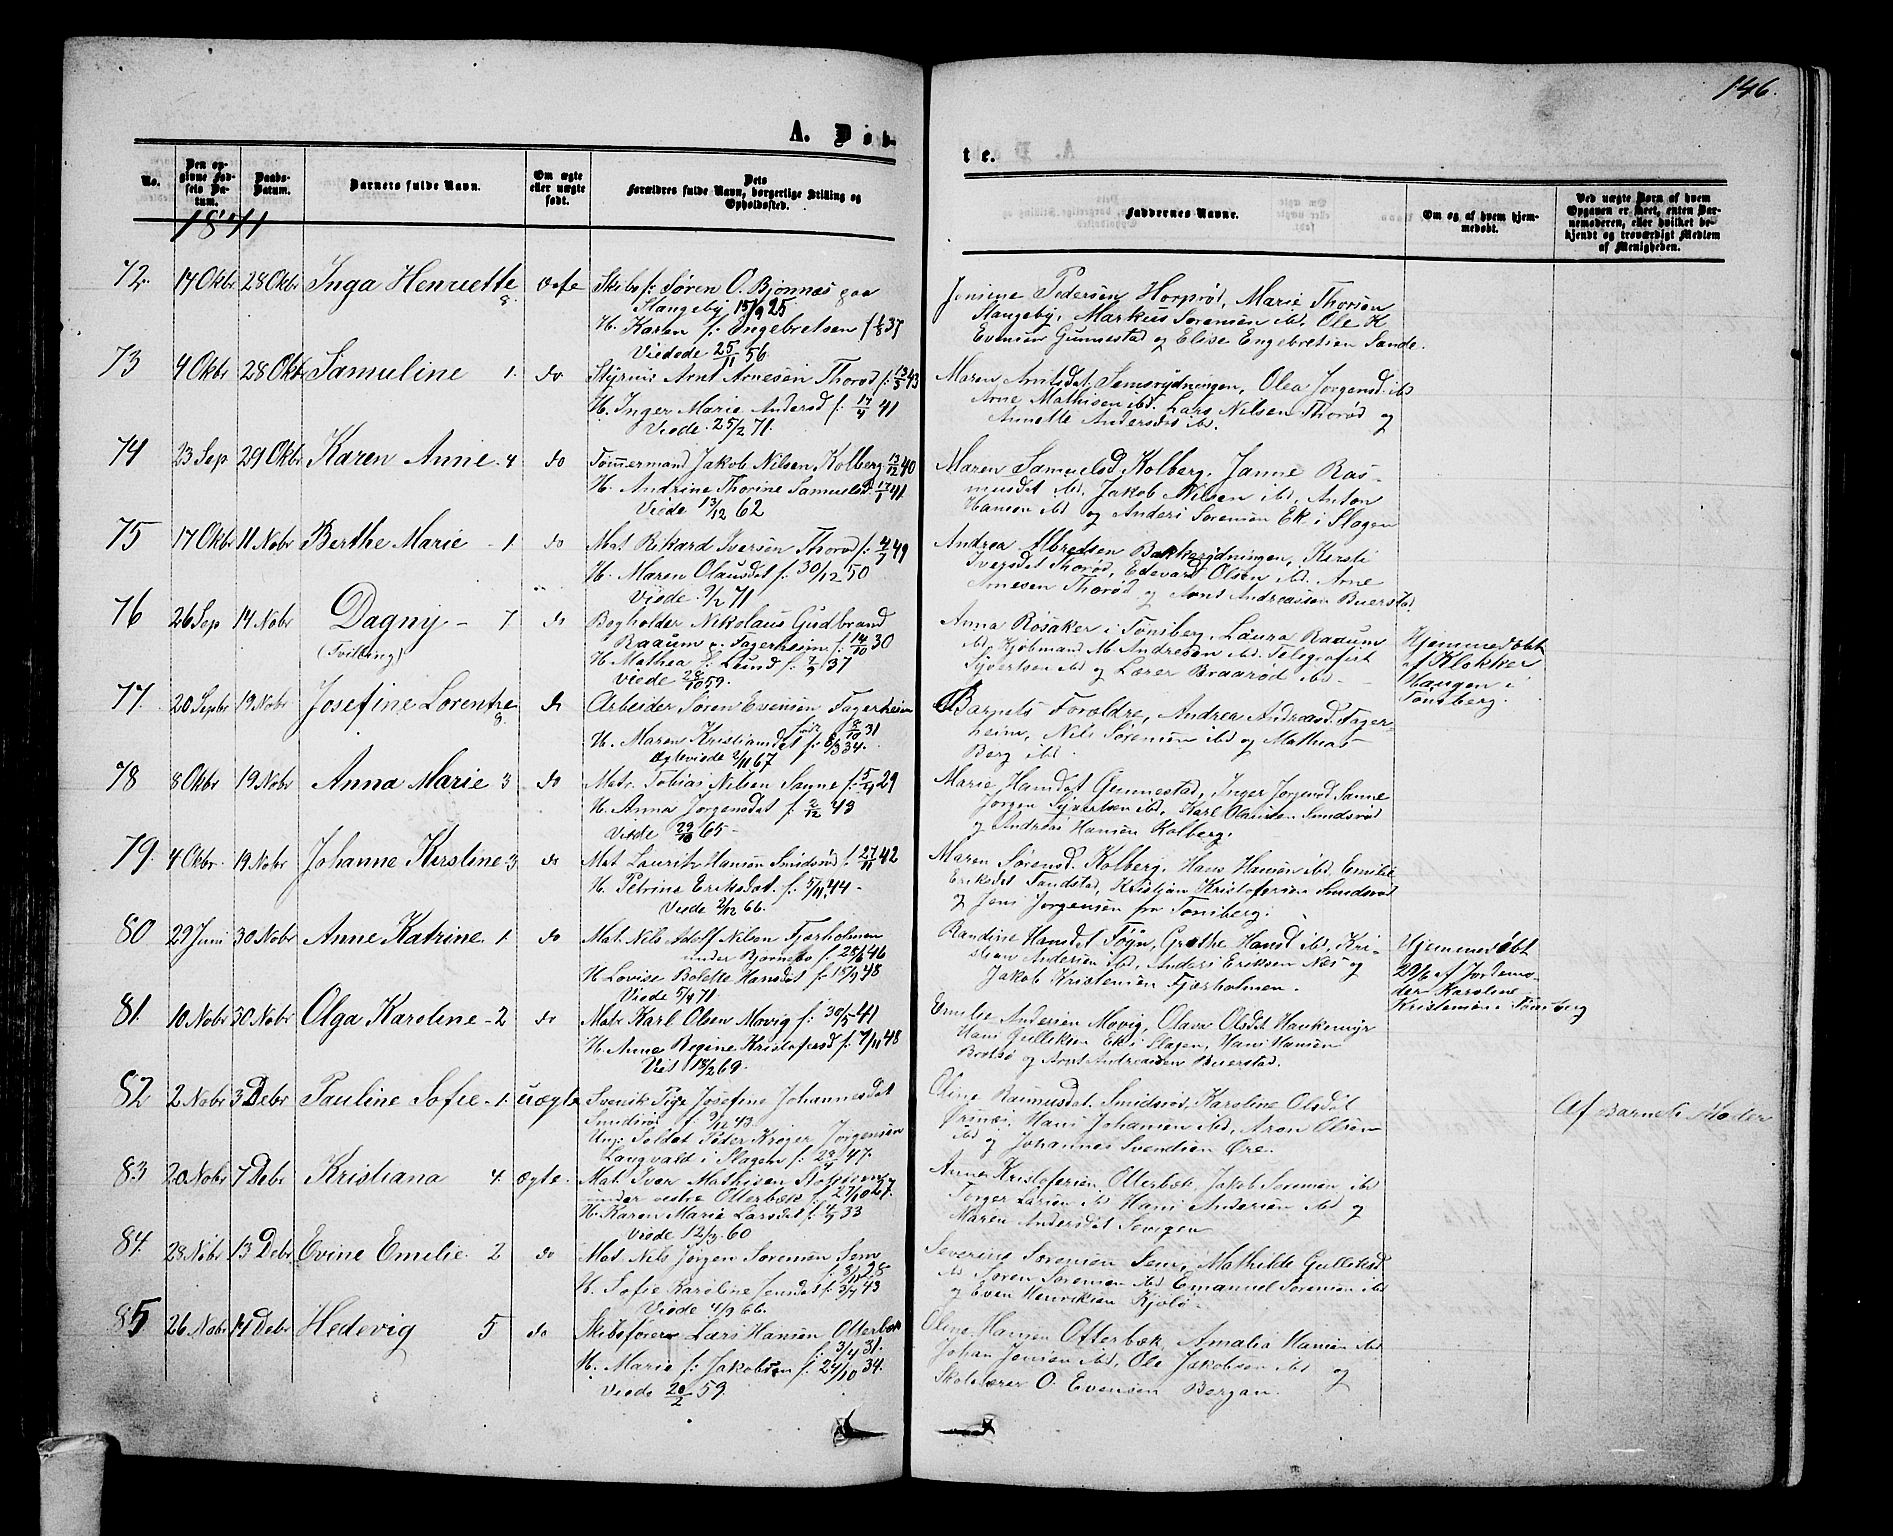 146.
A. Døb-
te.
No.
Den op-
givne Fød-
sels Da-
tum.
Daabs-
Datum.
Barnets fulde Navn.
Om ægte
eller uægte
født.
Dets
Forældres fulde Navn, borgerlige Stilling og
Opholdssted.
Faddernes Navne.
Om og af hvem hjem-
medøbt.
Ved uægte Børn af hvem
Opgaven er skeet, enten Bar-
nemoderen, eller hvilket be-
kjendt og troværdigt Medlem
af Menigheden.
1871
72. 17 Okbr 28 Okbr Inga Henriette 8.
Skibsf: Søren O. Bjønnes paa
Slangeby 15/9 25
H. Karen f: Engebretsen f 1/8 37
Viedede 25/11 56
Jensine Pedersen Horprød, Marie Thorsen
Slangeby, Markus Sorensen ibd. Ole H
Evensen Gunnestad og Elise Engebretsen Sande.
73 9 Okbr 28 Okt Samuline 1. do
Arnt Arnesen Thorød f: 13/5 43
H. Inger Marie Andersd f: 17/4 41
Viede 25/2 71.
Maren Arntsdat Semsrydningen, Olea Jorgensd. ibd
Arne Mathisen ibd. Lars Nilsen Thorød og
Annette Andersdat ibd.
74 23 Sep 29 Okbr Karen Anne 4 do
Tømmermand Jakob Nilsen Kolberg 13/12 40
H. Andrine Thorine Samuelsd. 17/1 41
Viede 13/12 62
Maren Samuelsd. Kolberg, Janne Ras-
musdat ibd. Jakob Nilsen ibd. Anton
Hansen ibd og Anders Sorensen Ek i Slagen
75 17 Okbr 11 Nobr Berthe Marie - 1. do
Mat Rikard Iversen Thorød f: 4/7 49
H. Maren Olausdat f: 30/12 50
Viede 2/2 71
Andrea Abretsen Bakkerydningen, Kersti
Iversdat Thorød, Edevard Olsen ibd. Arne
Arnesen Thorød og Arnt Andreassen Buerstad.
76 26 Sep 14 Nobr Dagny - 7 do
(Tvilling)
Bogholder Nikolaus Gudbrand
Raaum p. Fagerheim f: 14/10 30
H. Mathea f: Lund f: 2/9 37
Viede 28/10 59.
Anna Rosaker i Tønsberg, Laura Raaum
ibd. Kjøbmand M. Andresen ibd. Telegrafist
Syvertsen ibd og Lærer Braarød ibd -
Hjemmedøbt
af Klokker
Haugen i
Tønsberg.
77. 20 Sepbr 19 Nobr Josefine Lorentze 8. do
Arbeider Søren Evensen Fagerheim
født 8/10 31
H. Maren Kristiansdat f: 8/3 34.
Ægteviede 2/11 67
Barnets Forældre, Andrea Andreasd. Fager-
heim, Nils Sørensen ibd og Mathias
Berg ibd
78 8 Okbr 19 Nobr Anna Marie 3 do
Matr. Tobias Nilsen Sanne f: 5/4 29
H. Anna Jorgensdat f: 2/12 43
Viede 29/10 65 -
Marie Hansdat Gunnestad, Inger Jorgensd Sanne
Jorgen Syvertsen ibd, Karl Olausen Smidsrød
og Andreas Hansen Kolberg.
79. 4 Okbr. 19 Nobr Johanne Kerstine 3 do
Mat Lauritz Hansen Smidsrød f. 27/11 42
H. Petrine Eriksdat. f: 5/11 44 -
Viede 2/12 66.
Maren Sørensd. Kolberg, Hans Hansen ibd. Emilie
Eriksdat Sandstad, Kristian Kristofersen Smidsrød
og Jens Jorgensen fra Tønsberg.
80 29 Juni 30 Nobr Anne Katrine 1. do
Mat Nils Adolf Nilsen Fjærholmen
under Bjørnebo f: 25/6 46
H. Lovise Bolette Hansdat f: 15/9 48
Viede 5/9 71.
Randine Hansdat Føyn, Grethe Hansd ibd, Kri-
stjan Andersen ibd, Anders Eriksen Næs og
Jakob Kristensen Fjærholmen.
Hjemmedøbt
29/6 af Jordemo-
der Karoline
Kristensen i Tønsberg
81. 10 Nobr 30 Nobr Olga Karoline - 2 do
Matr Karl Olsen Movig f: 30/5 41
H. Anne Regine Kristofersd f: 7/11 48
Viet 18/2 69.
Emelie Andersen Movig, Olava Olsdat Haukemyr
Hans Gulliksen Ek i Slagen, Hans Hansen
og Arnt Andreassen Buerstad.
82 2 Nobr 3 Debr Pauline Sofie - 1. uægte
Svensk Pige Josefine Johannesdat
Smidsrød f: 9/12 43.
Ung. Soldat Peter Krøger Jorgensen
Langvald i Slagen f: 29/4 47.
Oline Rasmusdat. Smidsrød, Karoline Olsdat
Ørsnes, Hans Johansen ibd, Aron Olsen
ibd og Johannes Svendsen Øre.
Af Barnets Moder
83 20 Nobr 7 Debr Kristiana 4. ægte.
Mat Ivar Mathisen
under vestre Otterbæk f: 27/10 27.
H. Karen Marie Larsdat f: 4/9 33
Viede 12/3 60
Anne Kristofersen Otterbæk, Jakob Sorensen ibd
Torger Larsen ibd Hans Andersen ibd og
Maren Andersdat Sevigen
84. 28 Nobr 13 Debr Evine Emelie 2 do
Mat Nils Jørgen Sorensen Sem
f: 8/11 28
H. Sofie Karoline Jensdat f: 3/7 43
Viede 4/9 66.
Severine Sorensen Sem, Mathilde Gulliksd
ibd Soren Sorensen ibd Emanuel Sorensen ibd
og Even Henriksen Kjølø -
85 26 Nobr 14 Debr Hedevig 5 do
Skibsfører Lars Hansen Otterbæk
f: 3/4 31.
H. Marie f: Jakobsen f: 24/10 34.
Viede 20/2 59.
Oline Hansen Otterbæk, Amalia Hansen ibd
Johan Jensen ibd, Ole Jakobsen ibd og
Skolelærer O. Evensen Bergan.